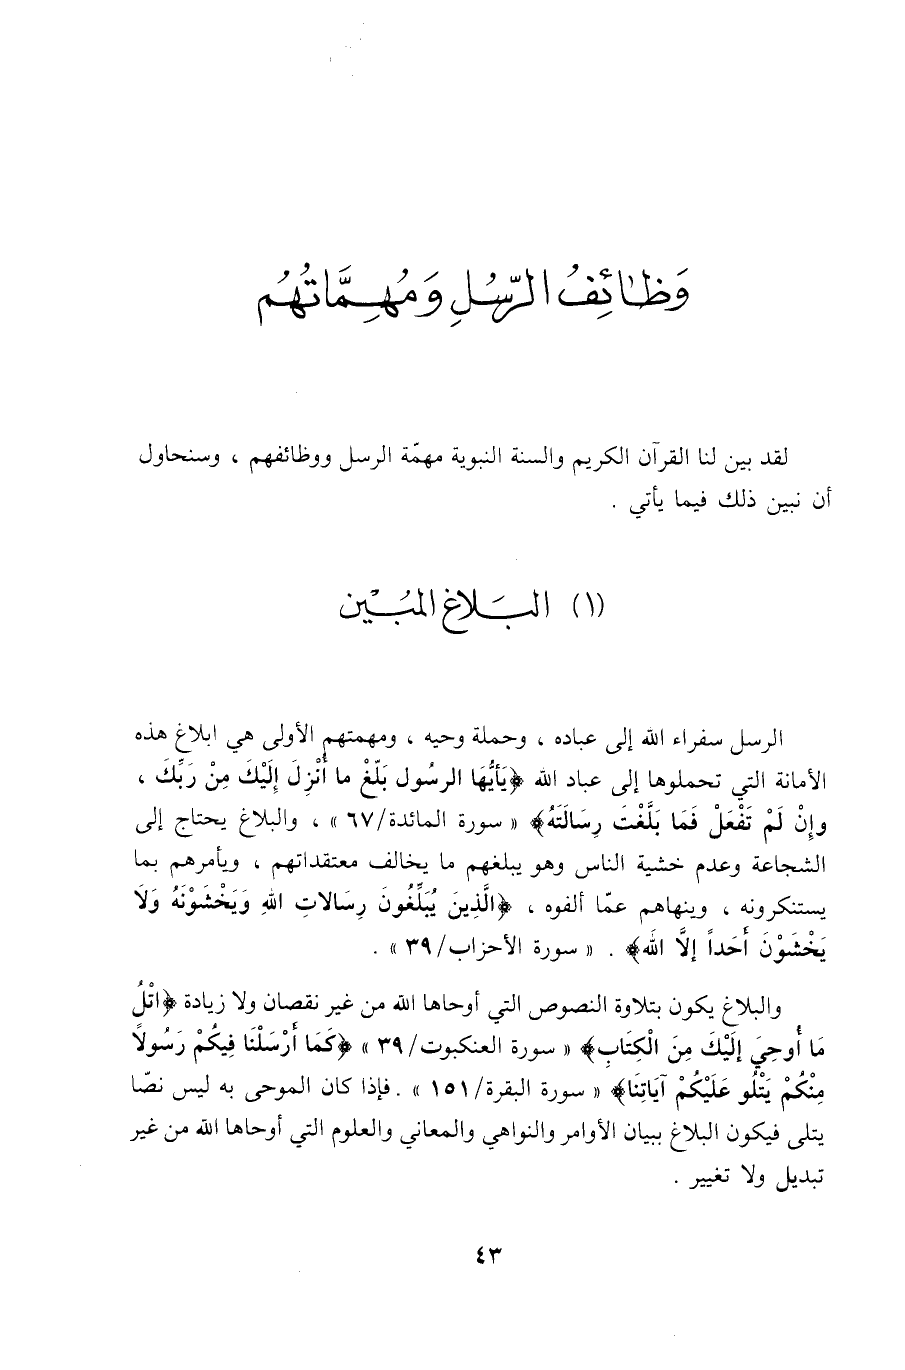 وَظَائِفُ الرّسُلِ وَمُهِمَّاتُهُم
لقد بين لنا القرآن الكريم والسنة النبوية مهمّة الرسل ووظائفهم ، وسنحاول
أن نبين ذلك فيما يأتي .
(١) البَلاغ المُبين
الرسل سفراء الله إلى عباده ، وحملة وحيه ، ومهمتهم الأولى هي ابلاغ هذه
الأمانة التي تحملوها إلى عباد الله ﴿يَأَيُّهَا الرسُول بَلّغْ ما أُنْزِلَ إِلَيْكَ مِنْ رَبِّكَ ،
وإِنْ لَمْ تَفْعَلْ فَمَا بَلَّغْتَ رِسَالَتَهُ﴾ « سورة المائدة/٦٧ » ، والبلاغ يحتاج إلى
الشجاعة وعدم خشية الناس وهو يبلغهم ما يخالف معتقداتهم ، ويأمرهم بما
يستنكرونه ، وينهاهم عمّا ألفوه ، ﴿الَّذِينَ يُبَلِّغُونَ رِسَالاتِ اللهِ وَيَخْشَوْنَهُ وَلَا
يَخْشَوْنَ أَحَداً إلَّا الله﴾ . « سورة الأحزاب/٣٩ » .
والبلاغ يكون بتلاوة النصوص التي أوحاها الله من غير نقصان ولا زيادة ﴿اتْلُ
مَا أُوحِيَ إِلَيْكَ مِنَ الْكِتَابِ﴾ « سورة العنكبوت/٣٩ » ﴿كَمَا أَرْسَلْنَا فِيكُمْ رَسُولاً
مِنْكُمْ يَتْلُو عَلَيْكُمْ آيَاتِنَا﴾ « سورة البقرة/١٥١ » . فإذا كان الموحى به ليس نصّا
يتلى فيكون البلاغ ببيان الأوامر والنواهي والمعاني والعلوم التي أوحاها الله من غير
تبديل ولا تغيير .
٤٣